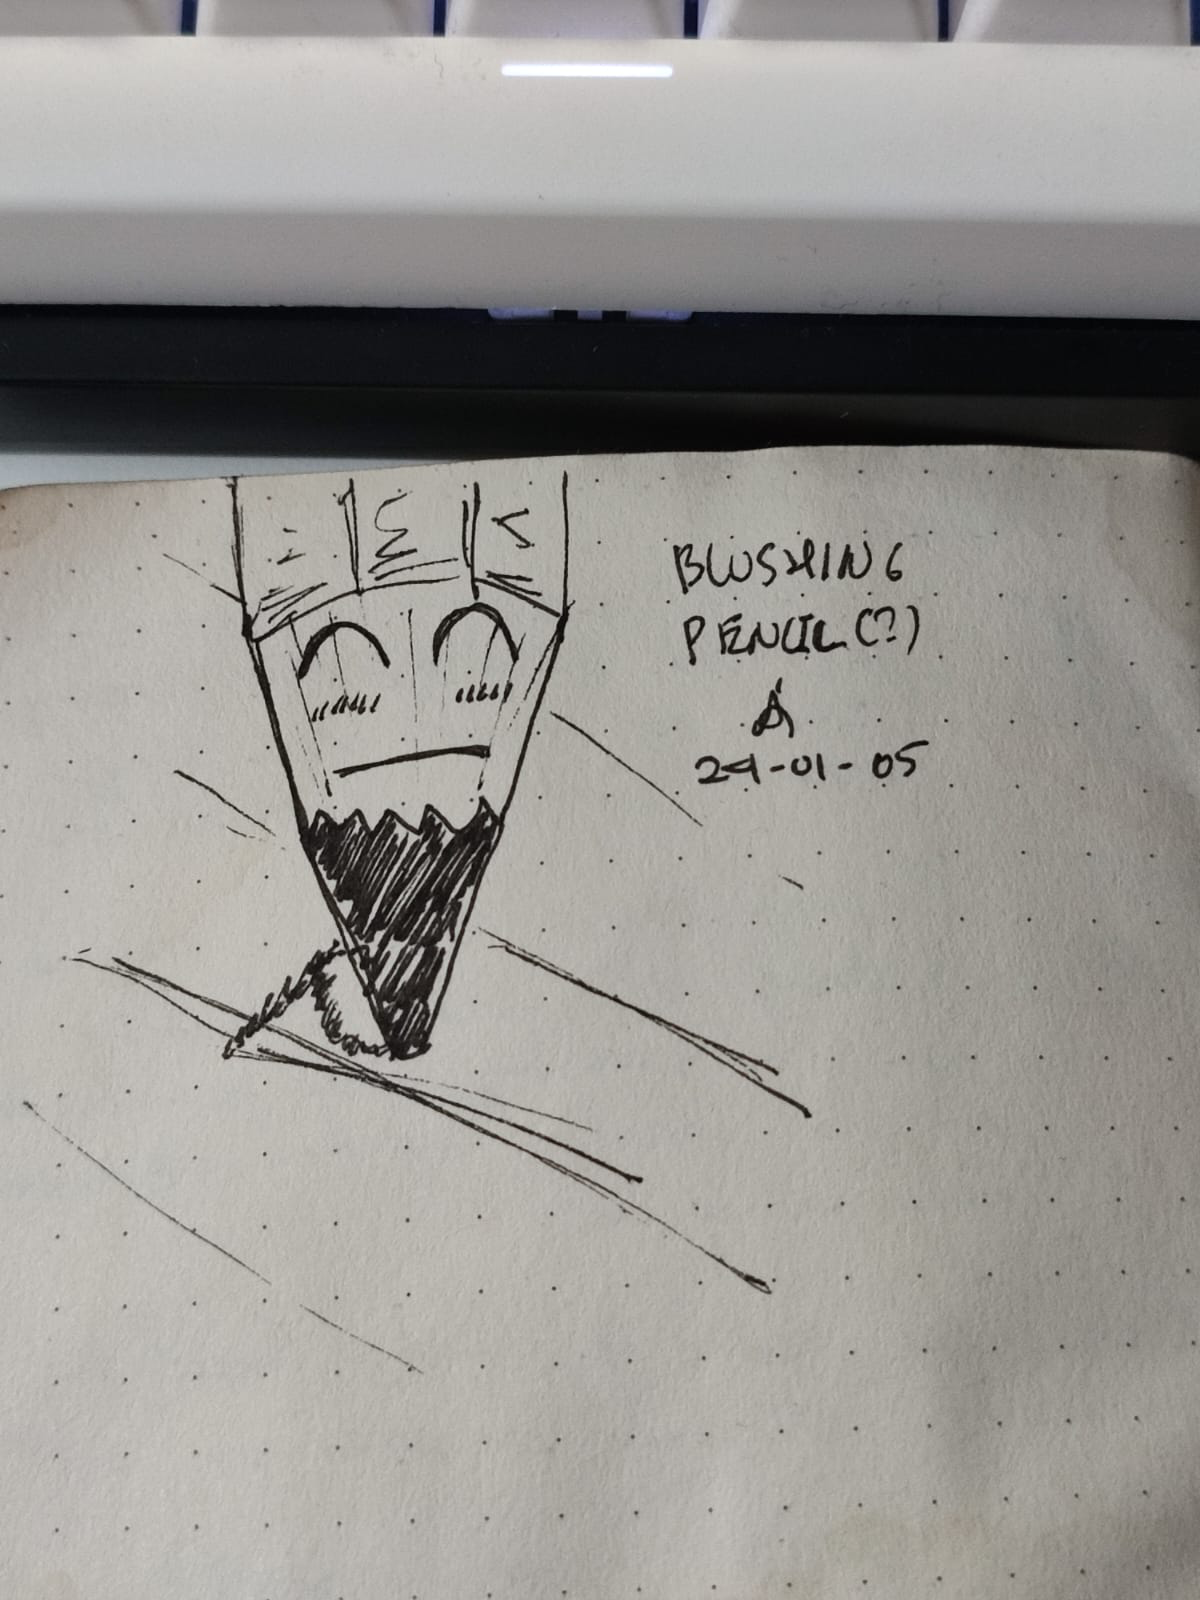 BLUSHING
PENCIL(?)
24-01-05